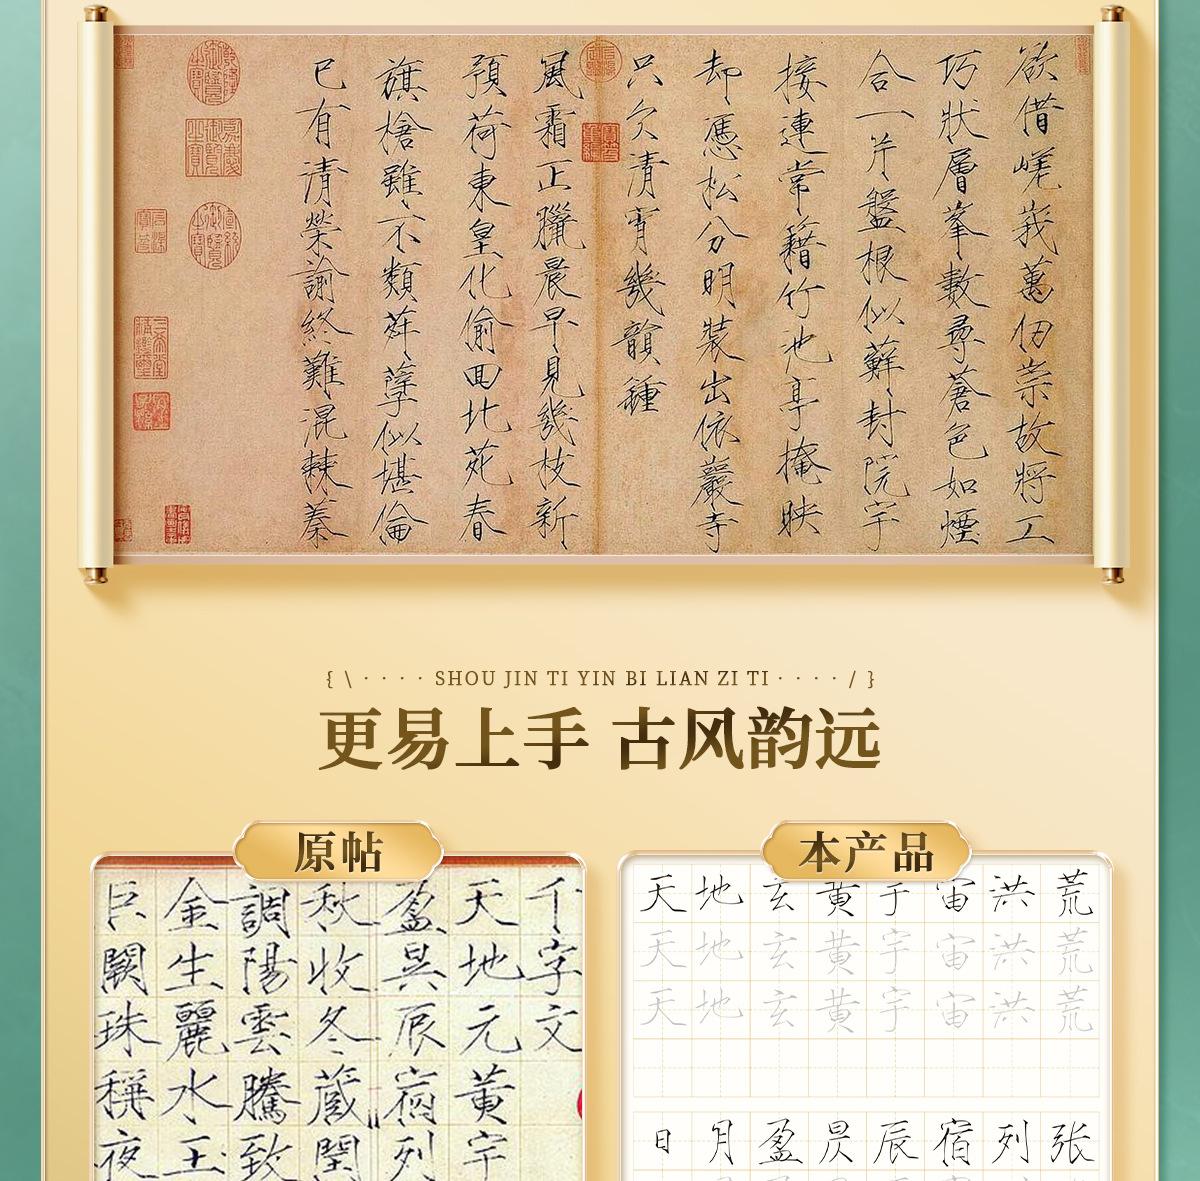 欲借嵯峨萬仞崇故將工
巧狀層峯數尋蒼色如煙
合一片盤根似蘚封院宇
接連常籍竹池亭掩映
却憑松分明裝出依巖寺
只欠清宵幾韻鍾
風霜正臘晨早見幾枝新
預荷東皇化偷回北苑春
旗槍雖不類荈孽似堪倫
已有清榮諭終難混棘蓁
{ \ · · · · SHOU JIN TI YIN BI LIAN ZI TI · · · · / }
更易上手 古风韵远
原帖
千字文
天地元黃宇
盈昃辰宿列
秋收冬蔵閏
調陽雲騰致
金生麗水玉
巨闕珠稱夜
本产品
天地玄黄宇宙洪荒
天地玄黄宇宙洪荒
天地玄黄宇宙洪荒
日月盈昃辰宿列张